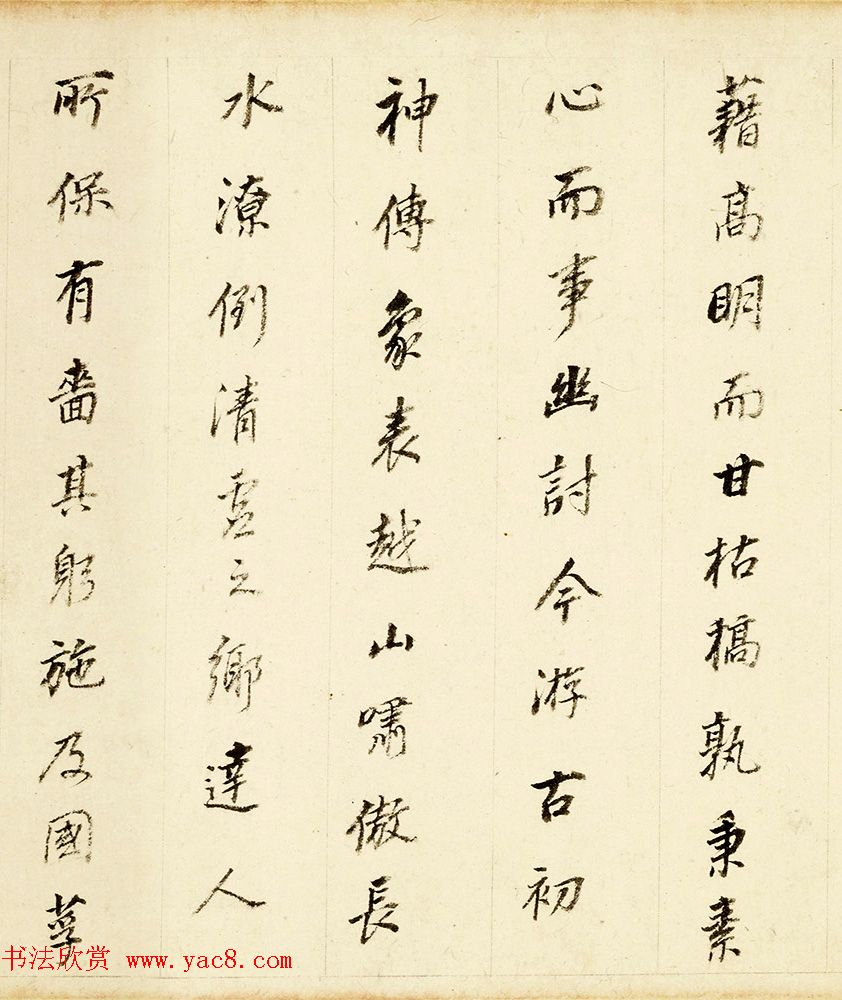 藉高明而甘枯稿孰秉素
心而事幽討今游古初
神傳象表越山嘯傲長
水潦倒清虛之鄉達人
所保有嗇其躬施及國
书法欣赏 www.yac8.com